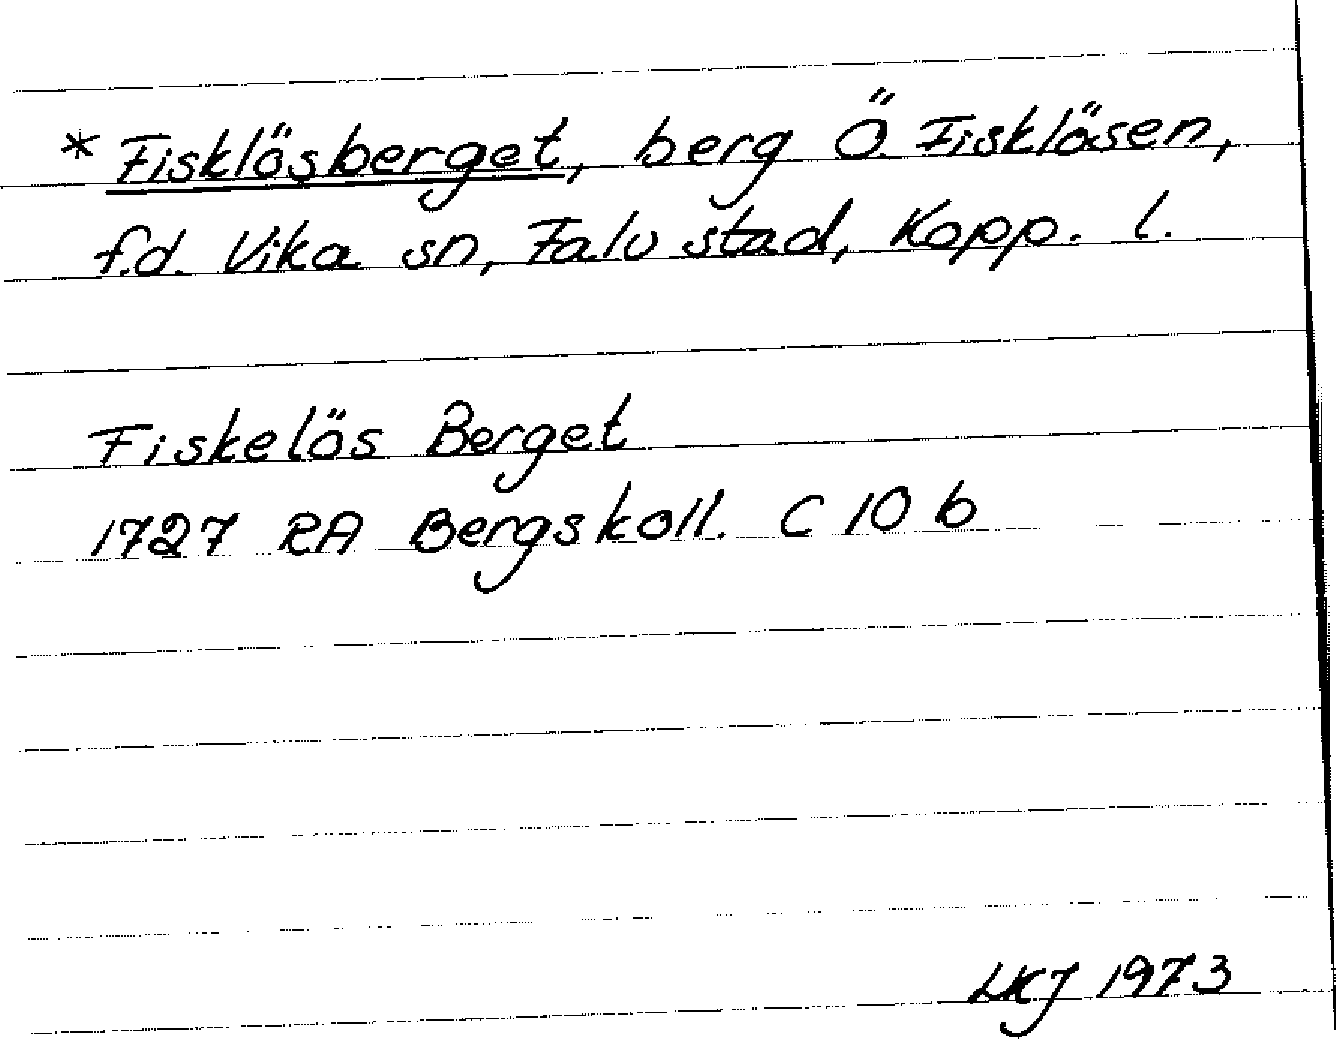 * Fisklösberget, berg Ö Fisklösen,
f.d. Vika sn, Falu stad, Kopp. l.
Fiskelös Berget
1727 RA Bergskoll. C 10 b
LKJ 1973